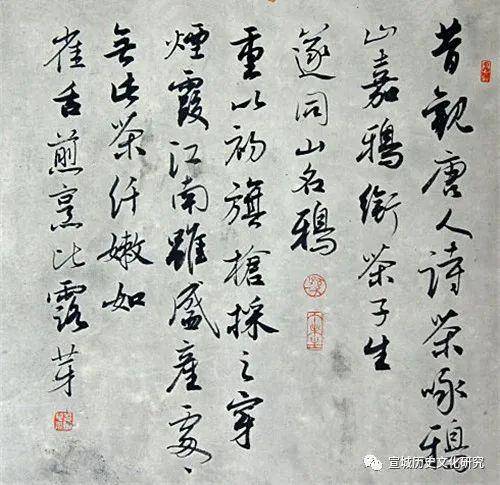 昔觀唐人詩茶咏鴉
山嘉鴉銜茶子生
遂同山名鴉
重以初旗槍採之穿
煙霞江南雖盛産處〻
無此茶纤嫩如
雀舌煎烹比露芽
宣城历史文化研究